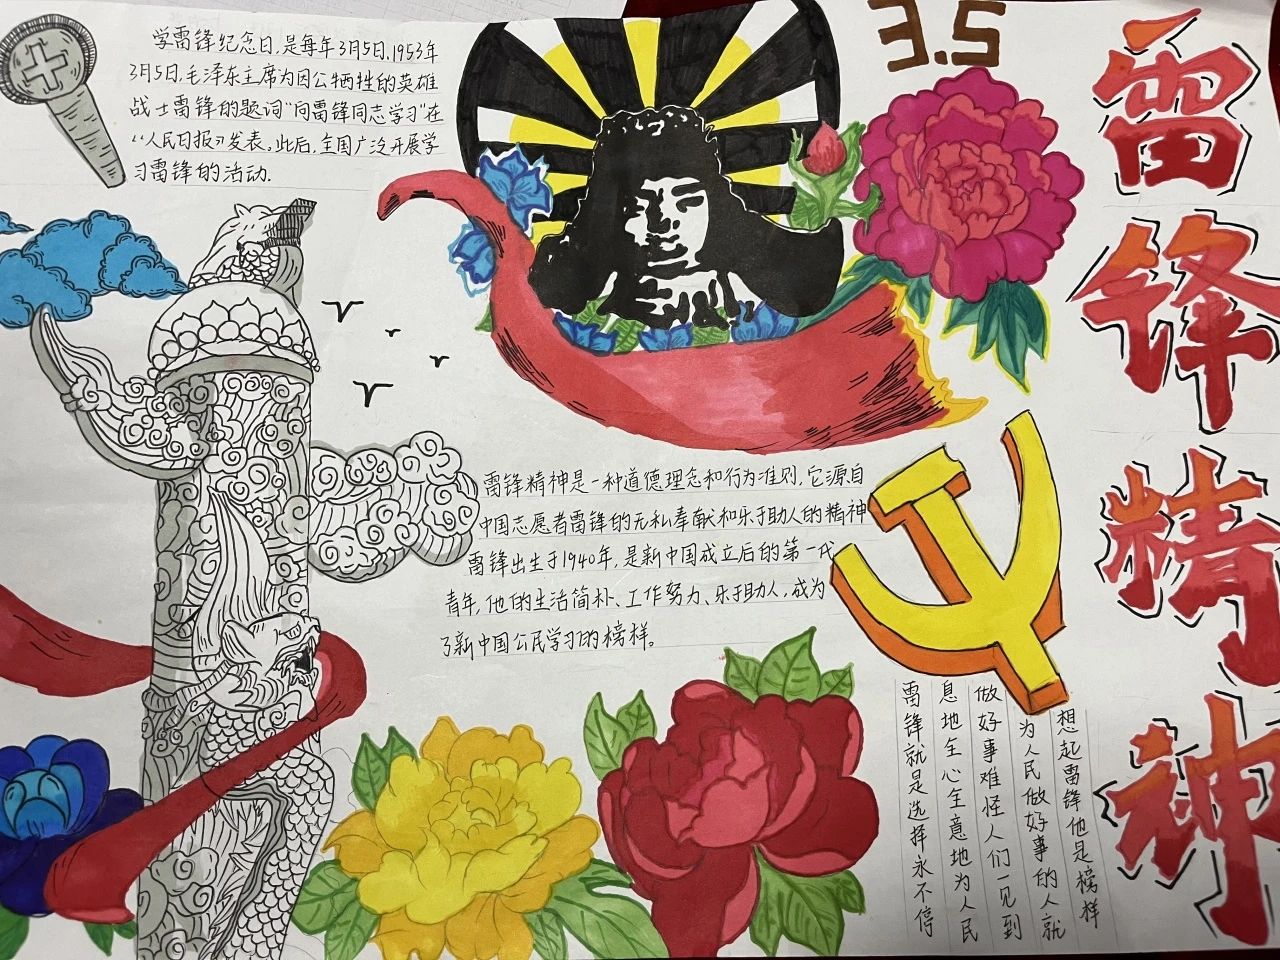 学雷锋纪念日,是每年3月5日,1953年
3月5日,毛泽东主席为因公牺牲的英雄
战士雷锋的题词"向雷锋同志学习"在
《人民日报》发表。此后,全国广泛开展学
习雷锋的活动.
3.5
雷锋精神
雷锋精神是一种道德理念和行为准则,它源自
中国志愿者雷锋的无私奉献和乐于助人的精神
雷锋出生于1940年,是新中国成立后的第一代
青年,他的生活简朴、工作努力、乐于助人,成为
了新中国公民学习的榜样。
雷锋就是选择永不停
息地全心全意地为人民
做好事难怪人们一见到
为人民做好事的人就
想起雷锋他是榜样